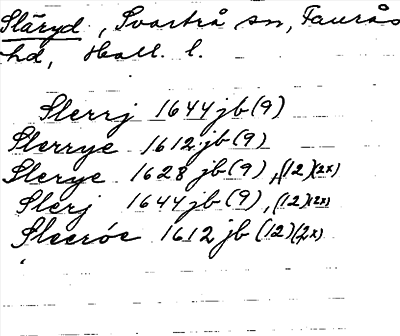 Släryd, Svartrå sn, Faurås
hd, Hall. l.
Slerrj 1644 jb (9)
Slerrye 1612 jb (9)
Slerye 1628 jb (9), (12)(2x)
Slerj 1644 jb (9), (12)(2x)
Sleeröe 1612 jb (12)(2x)